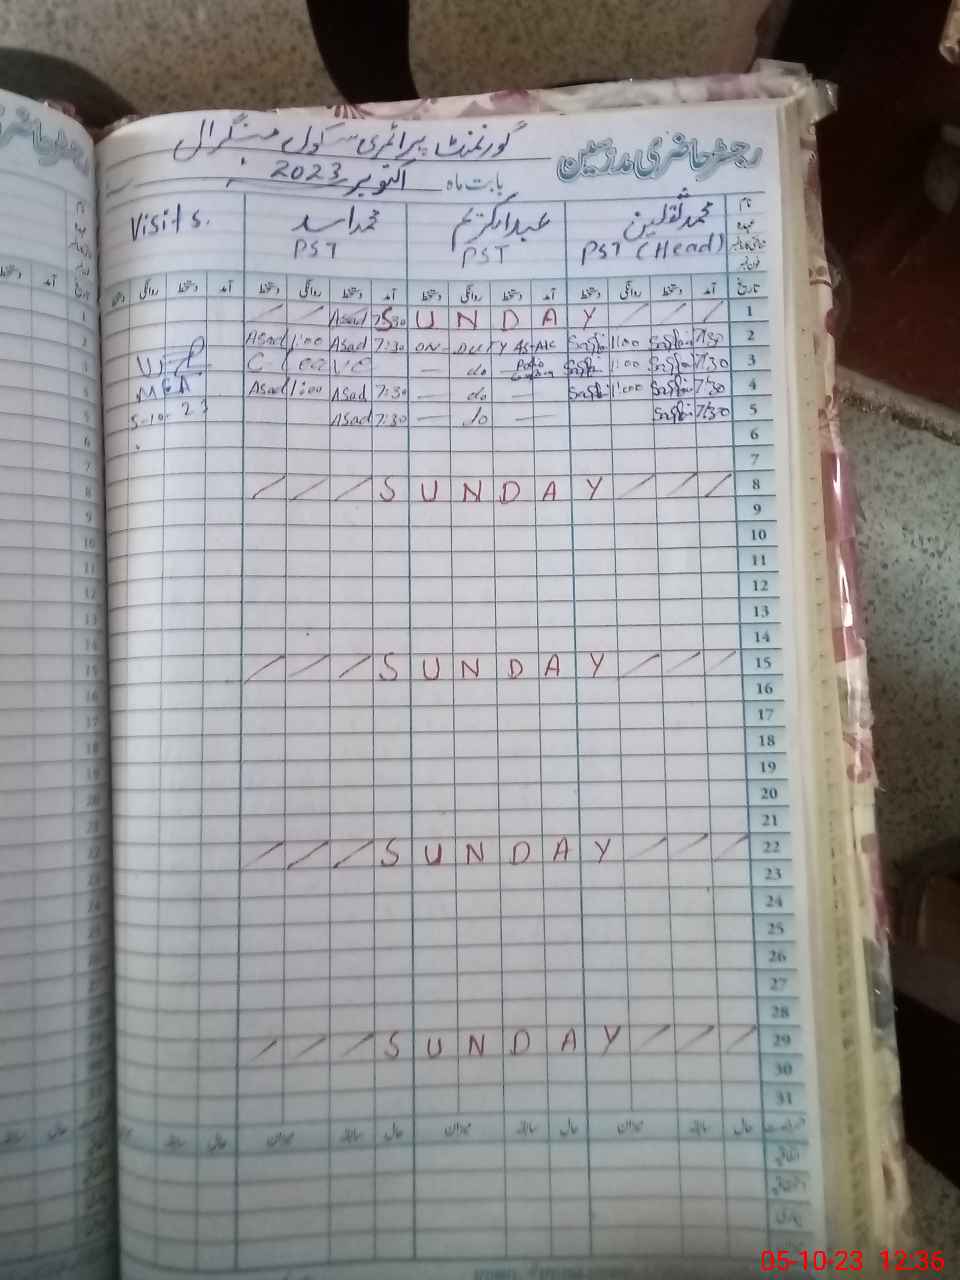 رجسٹر حاضری مدرسین
گورنمنٹ پرائمری سکول منگرال
بابت ماہ اکتوبر 2023
نام محمد ثقلین عبدالکریم محمد اسد Visits.
عہدہ PST (Head) PST PST
تاریخ آمد دستخط روانگی دستخط آمد دستخط روانگی دستخط آمد دستخط روانگی دستخط آمد دستخط روانگی دستخط
1 S U N D A Y Asad 7:30
2 Asad 1:00 Asad 7:30 ON DUTY AS AIC 1:00 7:30
3 C Leave do Polio 1:00 7:30
4 MEA Asad 1:00 Asad 7:30 do 1:00 7:30
5 5-10-23 Asad 7:30 do 7:30
6
7
8 S U N D A Y
9
10
11
12
13
14
15 S U N D A Y
16
17
18
19
20
21
22 S U N D A Y
23
24
25
26
27
28
29 S U N D A Y
30
31
حال سابقہ میزان حال سابقہ میزان حال سابقہ میزان
اتفاقیہ
استحقاقیہ
بیماری
05-10-23 12:36